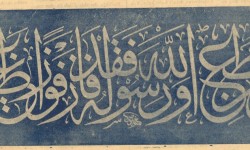 ومن يطع الله ورسوله فقد فاز فوزا عظيما